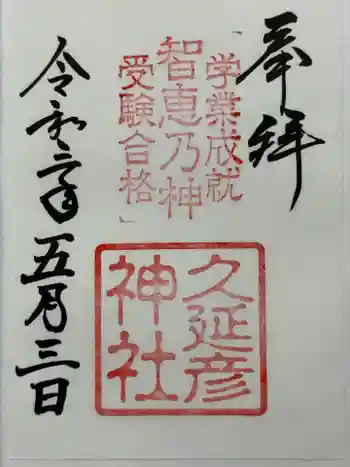 奉拝
「学業成就
智恵乃神
受験合格」
久延彦
神社
令和六年五月三日